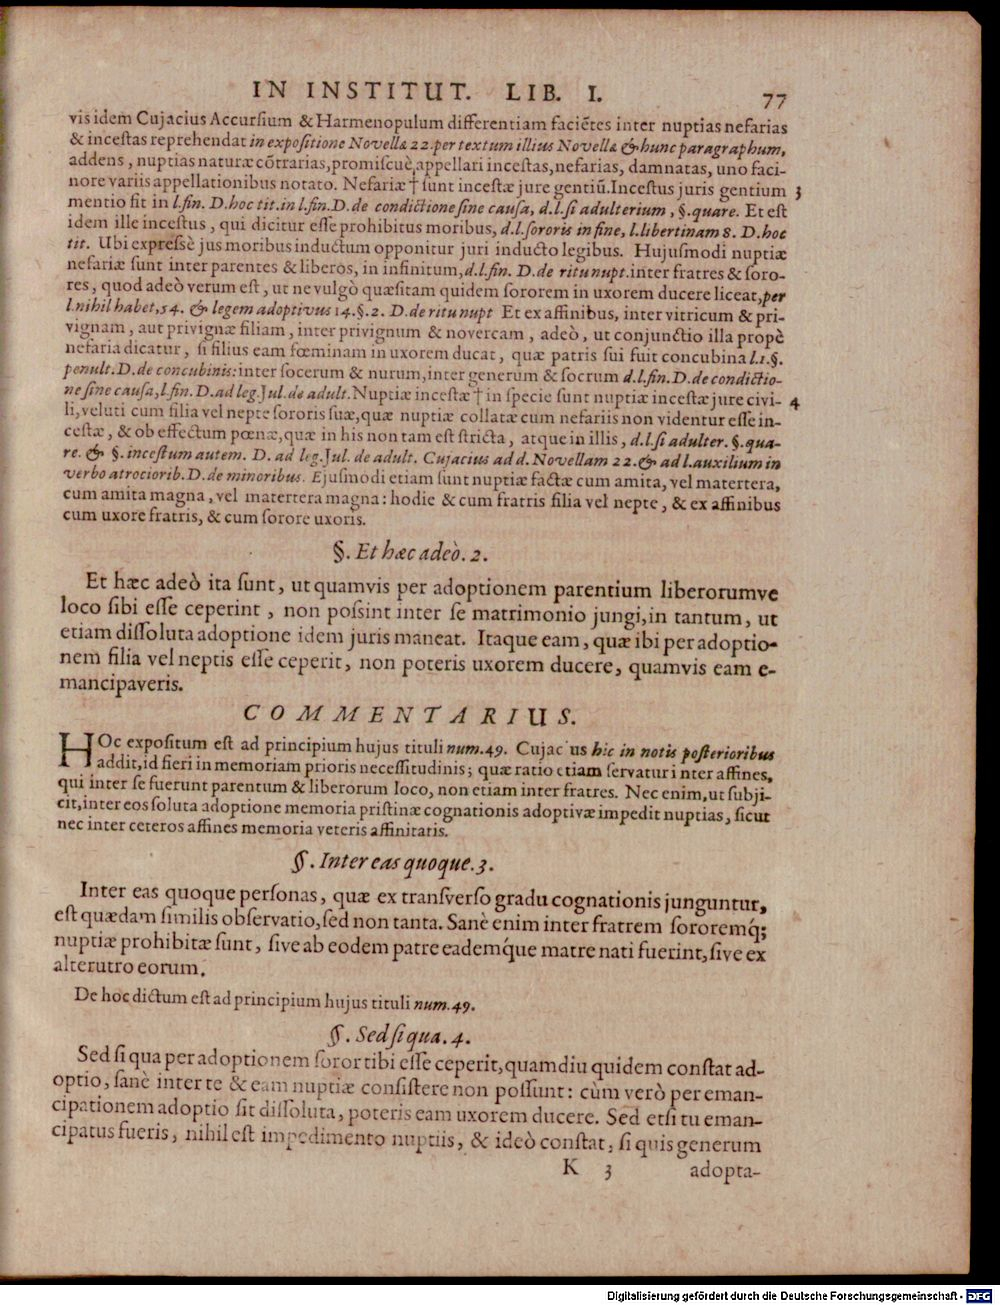 IN INSTITUT. LIB. I. 77
vis idem Cujacius Accursium & Harmenopulum differentiam faciẽtes inter nuptias nefarias
& incestas reprehendat in expositione Novellæ 22. per textum illius Novellæ & hunc paragraphum,
addens, nuptias naturæ cõtrarias, promiscuè appellari incestas, nefarias, damnatas, uno faci-
nore variis appellationibus notato. Nefariæ † sunt incestæ jure gentiũ. Incestus juris gentium 3
mentio fit in l. fin. D. hoc tit. in l. fin. D. de condictione sine causa, d. l. si adulterium, §. quare. Et est
idem ille incestus, qui dicitur esse prohibitus moribus, d. l. sororis in fine, l. libertinam 8. D. hoc
tit. Ubi expressè jus moribus inductum opponitur juri inducto legibus. Hujusmodi nuptiæ
nefariæ sunt inter parentes & liberos, in infinitum, d. l. fin. D. de ritu nupt. inter fratres & soro-
res, quod adeò verum est, ut ne vulgò quæsitam quidem sororem in uxorem ducere liceat, per
l. nihil habet, 54. & legem adoptivus 14. §. 2. D. de ritu nupt Et ex affinibus, inter vitricum & pri-
vignam, aut privignæ filiam, inter privignum & novercam, adeò, ut conjunctio illa propè
nefaria dicatur, si filius eam fœminam in uxorem ducat, quæ patris sui fuit concubina l. 1. §.
penult. D. de concubinis: inter socerum & nurum, inter generum & socrum d. l. fin. D. de condictio-
ne sine causa, l. fin. D. ad leg. Jul. de adult. Nuptiæ incestæ † in specie sunt nuptiæ incestæ jure civi- 4
li, veluti cum filia vel nepte sororis suæ, quæ nuptiæ collatæ cum nefariis non videntur esse in-
cestæ, & ob effectum pœnæ, quæ in his non tam est stricta, atque in illis, d. l. si adulter. §. qua-
re. & §. incestum autem. D. ad leg. Jul. de adult. Cujacius ad d. Novellam 22. & ad l. auxilium in
verbo atrociorib. D. de minoribus. Ejusmodi etiam sunt nuptiæ factæ cum amita, vel matertera,
cum amita magna, vel matertera magna: hodie & cum fratris filia vel nepte, & ex affinibus
cum uxore fratris, & cum sorore uxoris.
§. Et hæc adeò. 2.
Et hæc adeò ita sunt, ut quamvis per adoptionem parentium liberorumve
loco sibi esse ceperint, non possint inter se matrimonio jungi, in tantum, ut
etiam dissoluta adoptione idem juris maneat. Itaque eam, quæ ibi per adoptio-
nem filia vel neptis esse ceperit, non poteris uxorem ducere, quamvis eam e-
mancipaveris.
COMMENTARIUS.
HOc expositum est ad principium hujus tituli num. 49. Cujacius hic in notis posterioribus
addit, id fieri in memoriam prioris necessitudinis; quæ ratio etiam servatur inter affines,
qui inter se fuerunt parentum & liberorum loco, non etiam inter fratres. Nec enim, ut subji-
cit, inter eos soluta adoptione memoria pristinæ cognationis adoptivæ impedit nuptias, sicut
nec inter ceteros affines memoria veteris affinitatis.
§. Inter eas quoque. 3.
Inter eas quoque personas, quæ ex transverso gradu cognationis junguntur,
est quædam similis observatio, sed non tanta. Sanè enim inter fratrem sororemq́;
nuptiæ prohibitæ sunt, sive ab eodem patre eademq́ue matre nati fuerint, sive ex
alterutro eorum.
De hoc dictum est ad principium hujus tituli num. 49.
§. Sed si qua. 4.
Sed si qua per adoptionem soror tibi esse ceperit, quamdiu quidem constat ad-
optio, sanè inter te & eam nuptiæ consistere non possunt: cùm verò per eman-
cipationem adoptio sit dissoluta, poteris eam uxorem ducere. Sed etsi tu eman-
cipatus fueris, nihil est impedimento nuptiis, & ideò constat, si quis generum
K 3 adopta-
Digitalisierung gefördert durch die Deutsche Forschungsgemeinschaft - DFG